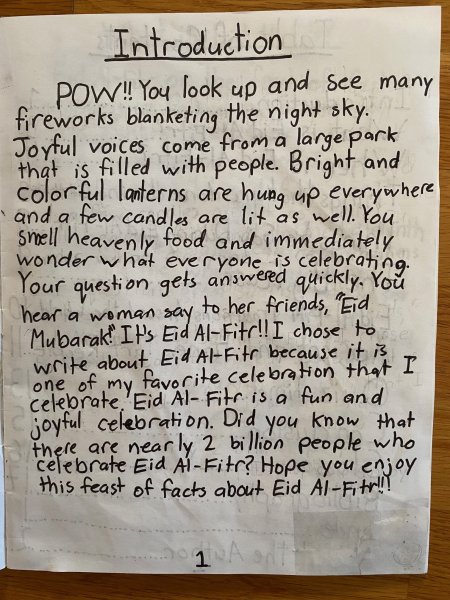 Introduction
POW!! You look up and see many
fireworks blanketing the night sky.
Joyful voices come from a large park
that is filled with people. Bright and
colorful lanterns are hung up everywhere
and a few candles are lit as well. You
smell heavenly food and immediately
wonder what everyone is celebrating.
Your question gets answered quickly. You
hear a woman say to her friends, "Eid
Mubarak!" It's Eid Al-Fitr!! I chose to
write about Eid Al-Fitr because it is
one of my favorite celebration that I
celebrate. Eid Al-Fitr is a fun and
joyful celebration. Did you know that
there are nearly 2 billion people who
celebrate Eid Al-Fitr? Hope you enjoy
this feast of facts about Eid Al-Fitr!!!
1